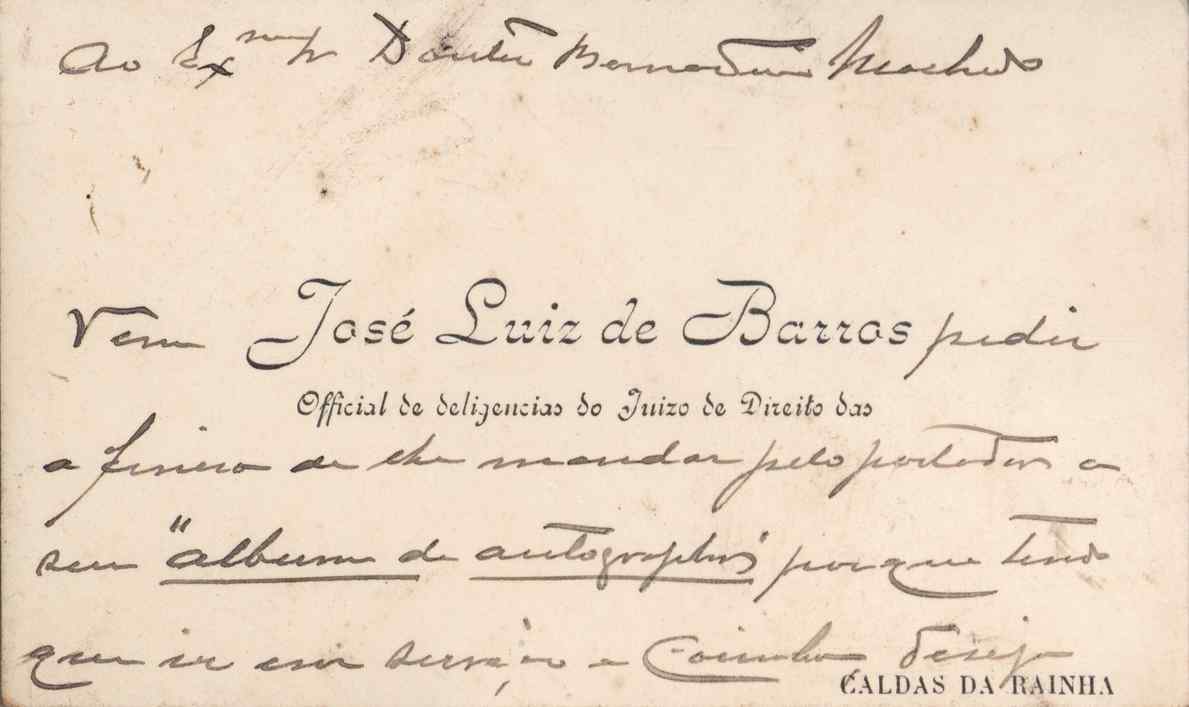 Ao Exmo Sr Doutor Bernardino Machado
Vem José Luiz de Barros pedir
Official de deligencias do Juizo de Direito das
a fineza de lhe mandar pelo portador o
seu "album de autographos" porque tendo
que ir em serviço a Coimbra deseja
CALDAS DA RAINHA